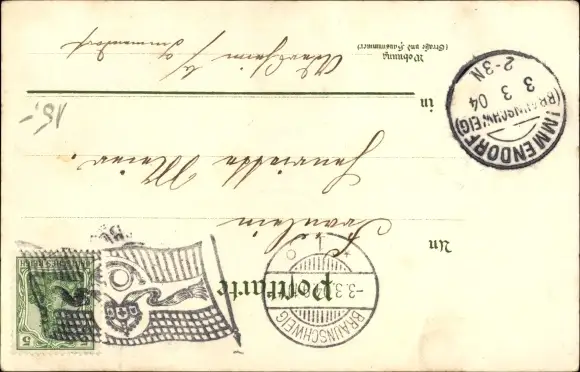 Postkarte
An
Fräulein
Henriette Meier.
in
Wohnung
(Straße und Hausnummer)
Immendorf
BRAUNSCHWEIG
-3.3.
* 1 o
IMMENDORF
(BRAUNSCHWEIG)
3 3 04
2-3N
DEUTSCHES REICH
5 5
15,-